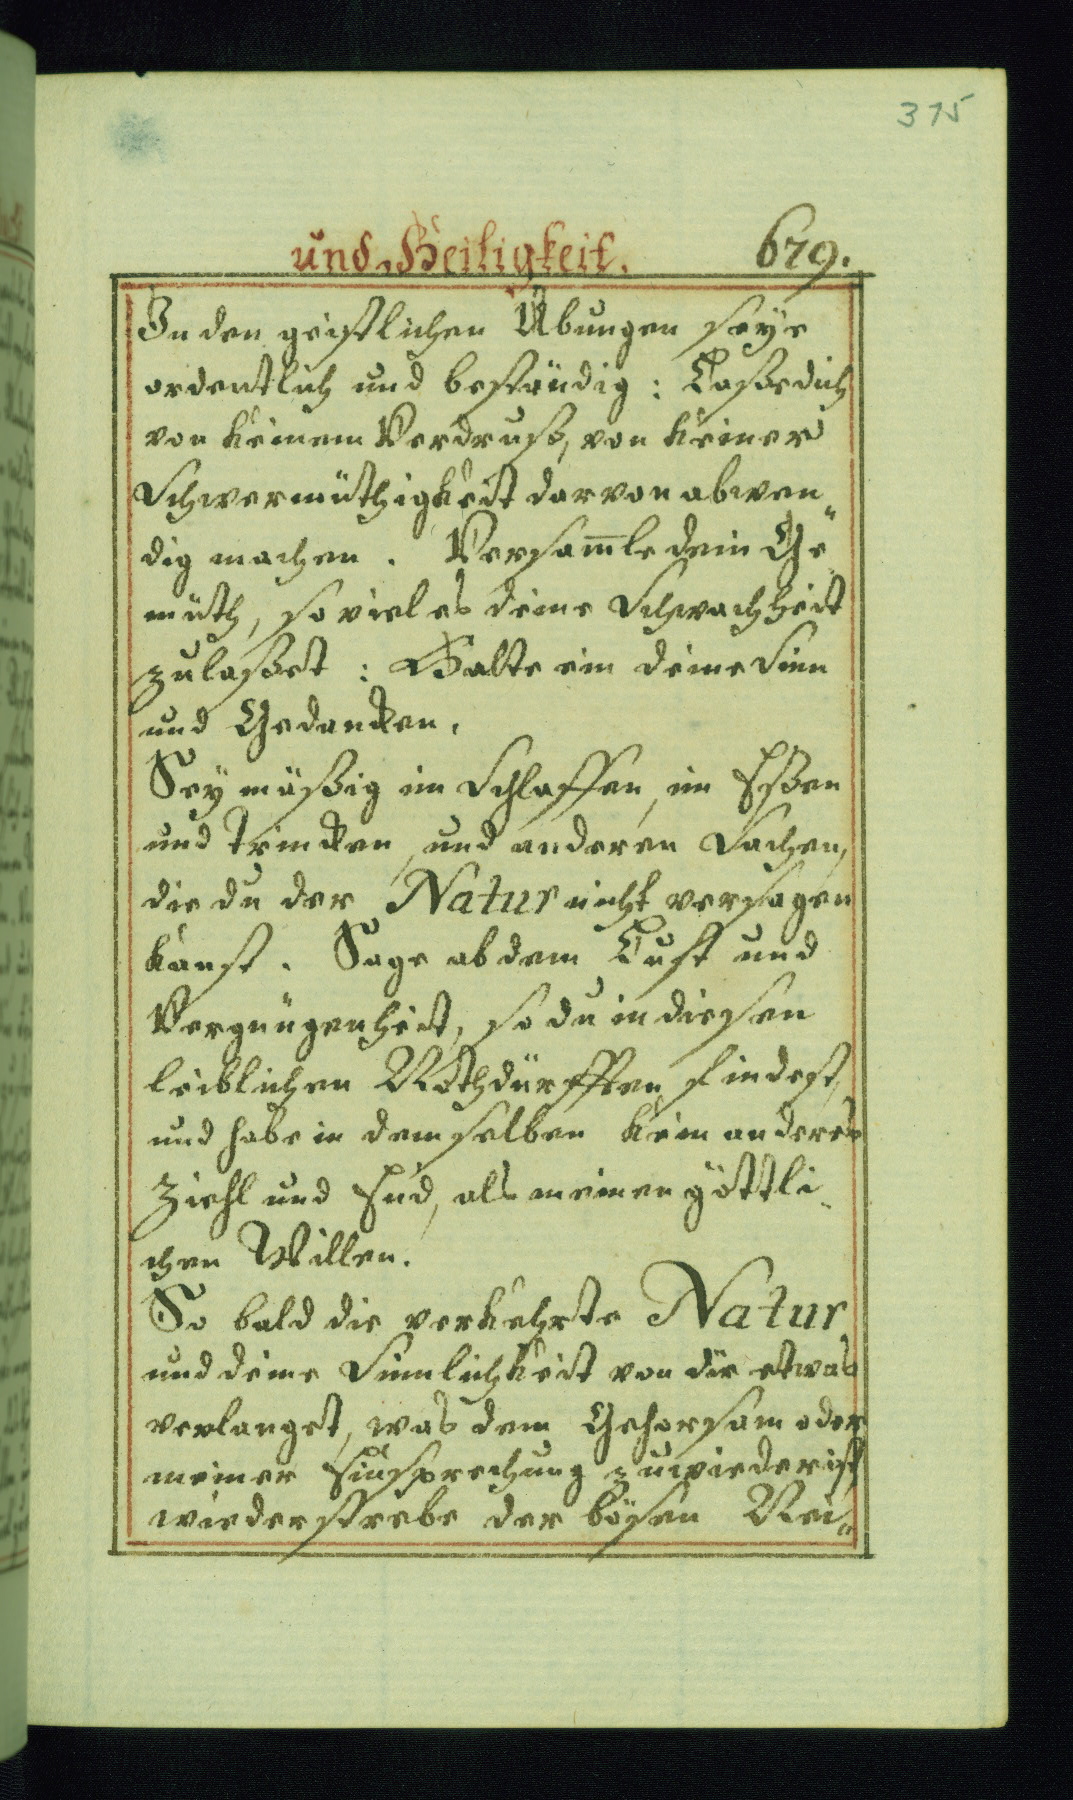 375
und Heiligkeit. 679.
In den geistlichen Übungen seye
ordentlich und beständig: Lasse dich
von keinem Verdruß, von keiner
Schwermüthigkeit darvon abwen„
dig machen. Versam̄le dein Ge„
müth, so viel es deine Schwachheit
zulasset: Halte ein deine Sinn
und Gedancken.
Sey mäßig im Schlaffen, im Essen
und Trincken, und anderen Sachen,
die du der Natur nicht versagen
kanst. Sage ab dem Lust und
Vergnügenheit, so du in diesen
leiblichen Nothdürfften findest,
und habe in demselben kein anderes
Ziehl und End, als meinen göttli„
chen Willen.
So bald die verkehrte Natur
und deine Sinnlichkeit von dir etwas
verlanget, was dem Gehorsam oder
meiner Einsprechung zuwieder ist
wiederstrebe der bösen Nei„